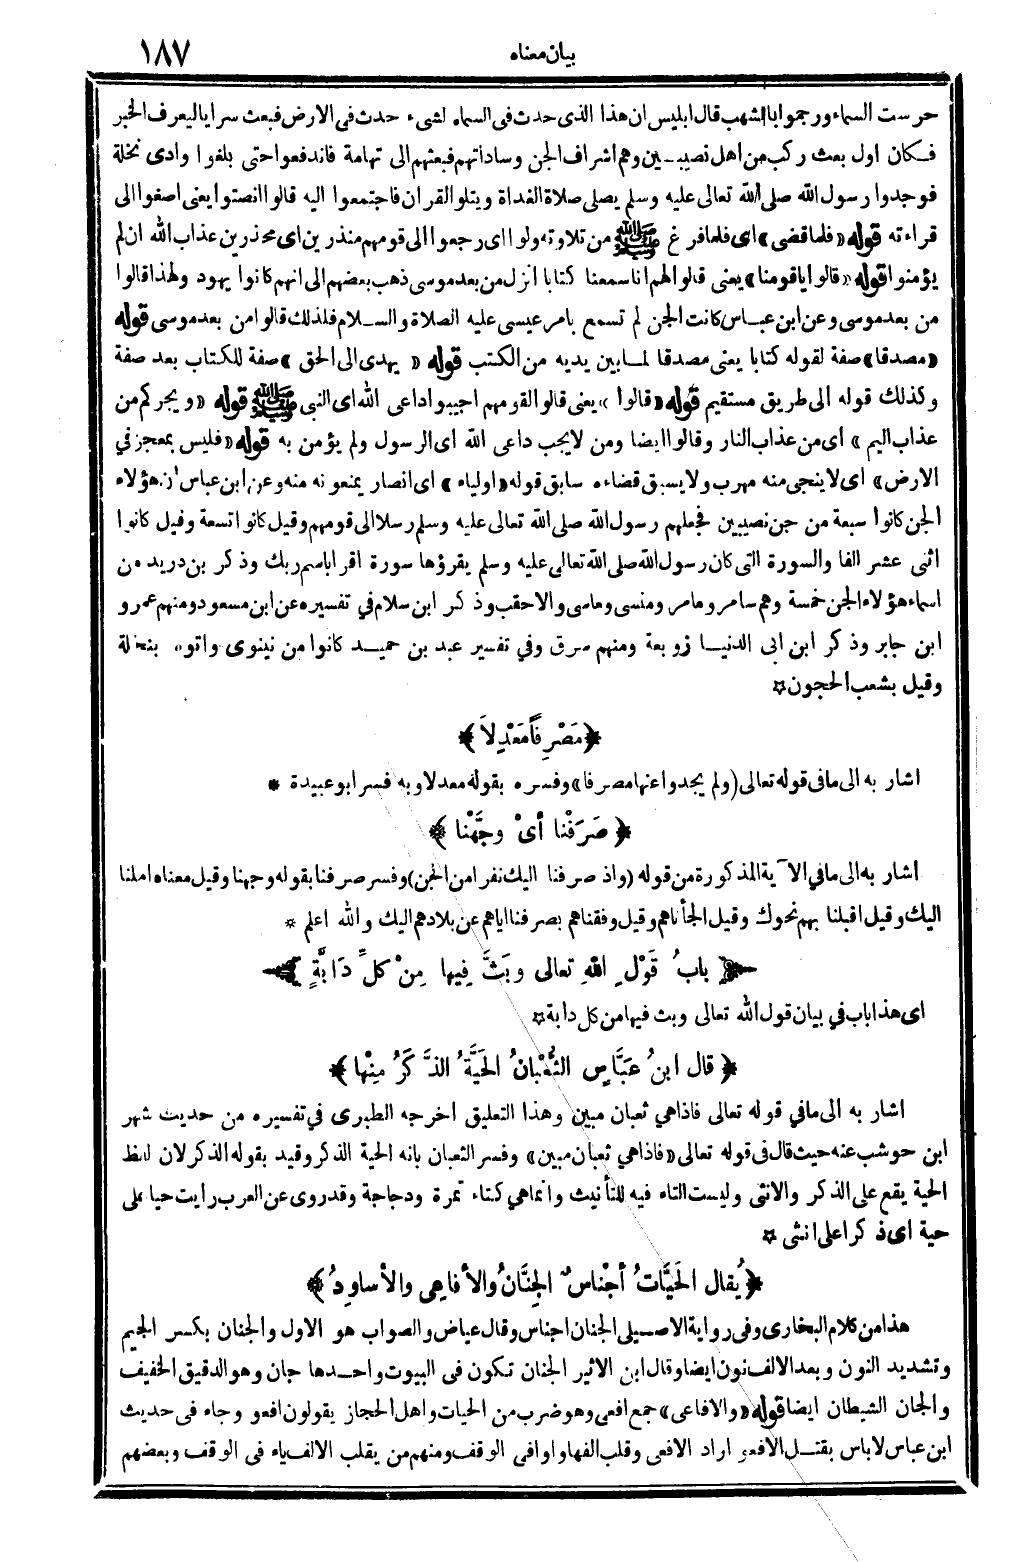 بيان معناه ١٨٧
حرست السماء ورجموا بالشهب قال ابليس ان هذا الذى حدث فى السماء لشىء حدث فى الارض فبعث سراياه ليعرف الخبر
فكان اول بعث ركب من اهل نصيبين وهم اشراف الجن وساداتهم فبعثهم الى تهامة فاندفعوا حتى بلغوا وادى نخلة
فوجدوا رسول الله صلى الله تعالى عليه وسلم يصلى صلاة الغداة ويتلو القران فاجتمعوا اليه قالوا انصتوا يعنى اصغوا الى
قراءته قوله «فلما قضى» اى فلما فرغ ﷺ من تلاوته ولوا اى رجعوا الى قومهم منذرين اى محذرين عذاب الله ان لم
يؤمنوا قوله «قالوا ياقومنا» يعنى قالوا لهم انا سمعنا كتابا انزل من بعد موسى ذهب بعضهم الى انهم كانوا يهود ولهذا قالوا
من بعد موسى وعن ابن عباس كانت الجن لم تسمع بامر عيسى عليه الصلاة والسلام فلذلك قالوا من بعد موسى قوله
«مصدقا» صفة لقوله كتابا يعنى مصدقا لما بين يديه من الكتب قوله «يهدى الى الحق» صفة للكتاب بعد صفة
وكذلك قوله الى طريق مستقيم قوله «قالوا» يعنى قالو القومهم اجيبوا داعى الله اى النبى ﷺ قوله «ويجركم من
عذاب اليم» اى من عذاب النار وقالوا ايضا ومن لايجب داعى الله اى الرسول ولم يؤمن به قوله «فليس بمعجز في
الارض» اى لا ينجى منه مهرب ولا يسبق قضاءه سابق قوله «اولياء» اى انصار يمنعونه منه وعن ابن عباس ان هؤلاء
الجن كانوا سبعة من جن نصيبين فجعلهم رسول الله صلى الله تعالى عليه وسلم رسلا الى قومهم وقيل كانوا تسعة وقيل كانوا
اثنى عشر الفا والسورة التى كان رسول الله صلى الله تعالى عليه وسلم يقرؤها سورة اقرا باسم ربك وذكر بن دريد من
اسماء هؤلاء الجن خمسة وهم سامر ومامر ومنسى وماسى والاحقب وذكر ابن سلام في تفسيره عن ابن مسعود ومنهم عمرو
ابن جابر وذكر ابن ابى الدنيا زوبعة ومنهم سرق وفي تفسير عبد بن حميد كانوا من نينوى واتوه بنخلة
وقيل بشعب الحجون
﴿مَصْرِفًا مَعْدِلاً﴾
اشار به الى ما فى قوله تعالى (ولم يجدوا عنها مصرفا) وفسره بقوله معدلا وبه فسر ابو عبيدة *
﴿صَرَفْنا أىْ وجَّهْنا﴾
اشار به الى ما في الآية المذكورة من قوله (واذ صرفنا اليك نفرا من الجن) وفسر صرفنا بقوله وجهنا وقيل معناه املنا
اليك وقيل اقبلنا بهم نحوك وقيل الجأناهم وقيل وفقناهم بصرفنا اياهم عن بلادهم اليك والله اعلم *
﴿بابُ قَوْلِ اللهِ تعالى وبَثَّ فِيها مِنْ كلِّ دَابَّةٍ﴾
اى هذا باب في بيان قول الله تعالى وبث فيها من كل دابة
﴿قال ابنُ عَبَّاسٍ الثُّعْبانُ الحَيَّةُ الذَّكَرُ مِنْها﴾
اشار به الى ما في قوله تعالى فاذا هي ثعبان مبين وهذا التعليق اخرجه الطبرى في تفسيره من حديث شهر
ابن حوشب عنه حيث قال فى قوله تعالى «فاذا هي ثعبان مبين» وفسر الثعبان بانه الحية الذكر وقيد بقوله الذكر لان لفظ
الحية يقع على الذكر والانثى وليست التاء فيه للتأنيث وانما هي كتاء تمرة ودجاجة وقد روى عن العرب رايت حيا على
حية اى ذكرا على انثى
﴿يُقال الحَيَّاتُ أجْناسٌ الجِنَّانُ والأفاعِى والأساوِدُ﴾
هذا من كلام البخارى وفى رواية الاصيلى الجنان اجناس وقال عياض والصواب هو الاول والجنان بكسر الجيم
وتشديد النون وبعد الالف نون ايضا وقال ابن الاثير الجنان تكون فى البيوت واحدها جان وهو الدقيق الخفيف
والجان الشيطان ايضا قوله «والافاعى» جمع افعى وهو ضرب من الحيات واهل الحجاز يقولون افعو وجاء فى حديث
ابن عباس لا باس بقتل الافعو اراد الافعى وقلب الفها واوا فى الوقف ومنهم من يقلب الالف ياء فى الوقف وبعضهم